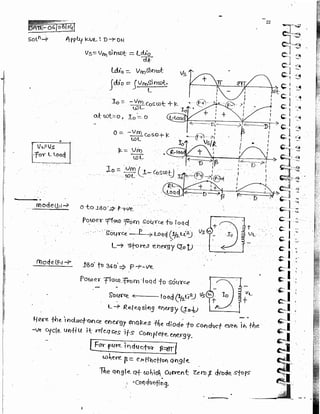 22
DATE - 06/08/14
Solⁿ→ Apply KVL : D → ON
Vs = Vm sinωt = L dio/dt
Ldio = Vm sinωt
∫dio = ∫ Vm sinωt / L
Io = -Vm/ωL cosωt + k
at ωt=0, Io = 0
0 = -Vm/ωL cos0 + k
k = Vm/ωL
Io = Vm/ωL [1 - cosωt]
Vo = Vs
for L load
mode(i)→ 0 to 180° ⇒ P +ve
Power flow from source to load
Source —P→ Load (½Li²)
L → stores energy (Io↑)
mode(ii)→ 180° to 360° ⇒ P → -ve
Power flow from load to source
Source ← load (½Li²)
L → Releasing energy (Io↓)
Here the inductance energy makes the diode to conduct even in the
-ve cycle until it releases its complete energy.
For pure inductor β=2π
where β = extinction angle
The angle at which current Zero & diode stops
conducting.